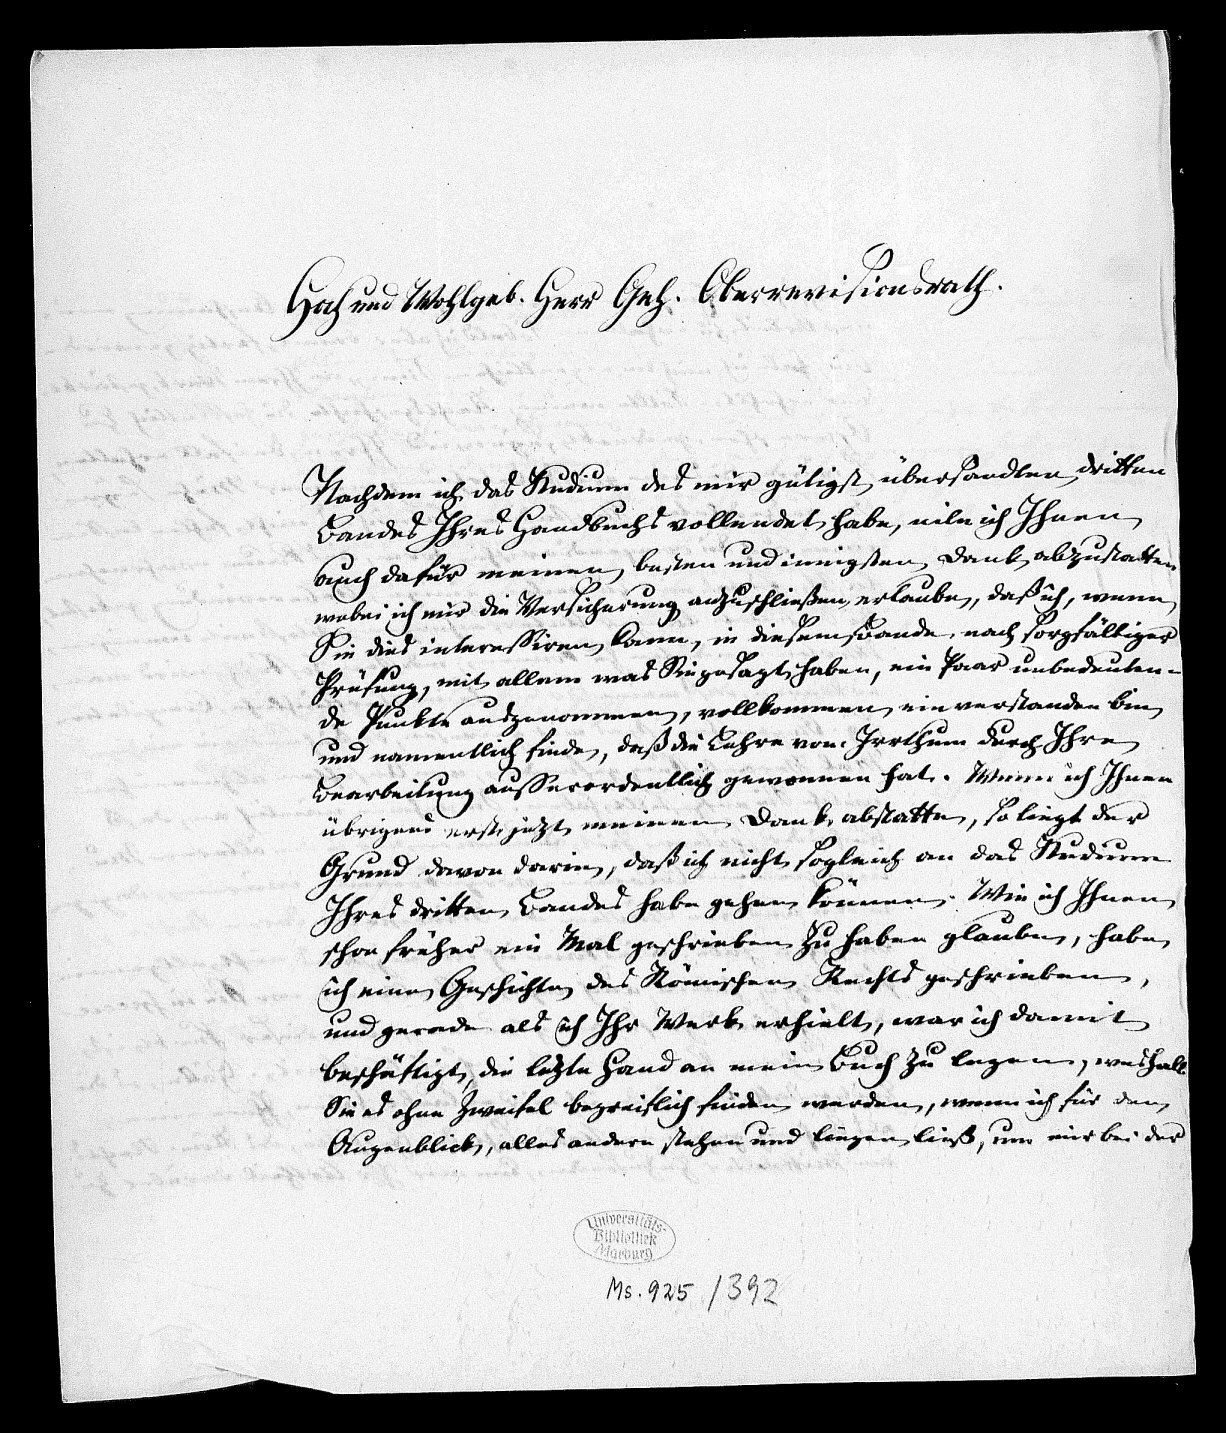 Hoch und Wohlgeb. Herr Geh. Oberrevisionsrath.
Nachdem ich das Studium des mir gütigst übersandten dritten
Bandes Ihres Handbuchs vollendet habe, eile ich Ihnen
auch dafür meinen besten und innigsten Dank abzustatten
wobei ich mir die Versicherung anzuschließen erlaube, daß ich, wenn
Sie dies interessiren kann, in diesem Bande nach sorgfältiger
Prüfung, mit allem was Sie gesagt haben, ein Paar unbedeuten-
de Punkte ausgenommen, vollkommen einverstanden bin
und namentlich finde, daß die Lehre vom Irrthum durch Ihre
Bearbeitung ausserordentlich gewonnen hat. Wenn ich Ihnen
übrigens erst jetzt meinen Dank abstatte, so liegt der
Grund davon darin, daß ich nicht sogleich an das Studium
Ihres dritten Bandes habe gehen können. Wie ich Ihnen
schon früher ein Mal geschrieben zu haben glaube, habe
ich eine Geschichte des Römischen Rechts geschrieben,
und gerade als ich Ihr Werk erhielt, war ich damit
beschäftigt, die letzte Hand an mein Buch zu legen, weshalb
Sie es ohne Zweifel begreiflich finden werden, wenn ich für den
Augenblick, alles andere stehen und liegen ließ, um mir bei der
Universitäts-
Bibliothek
Marburg
Ms. 925 / 392